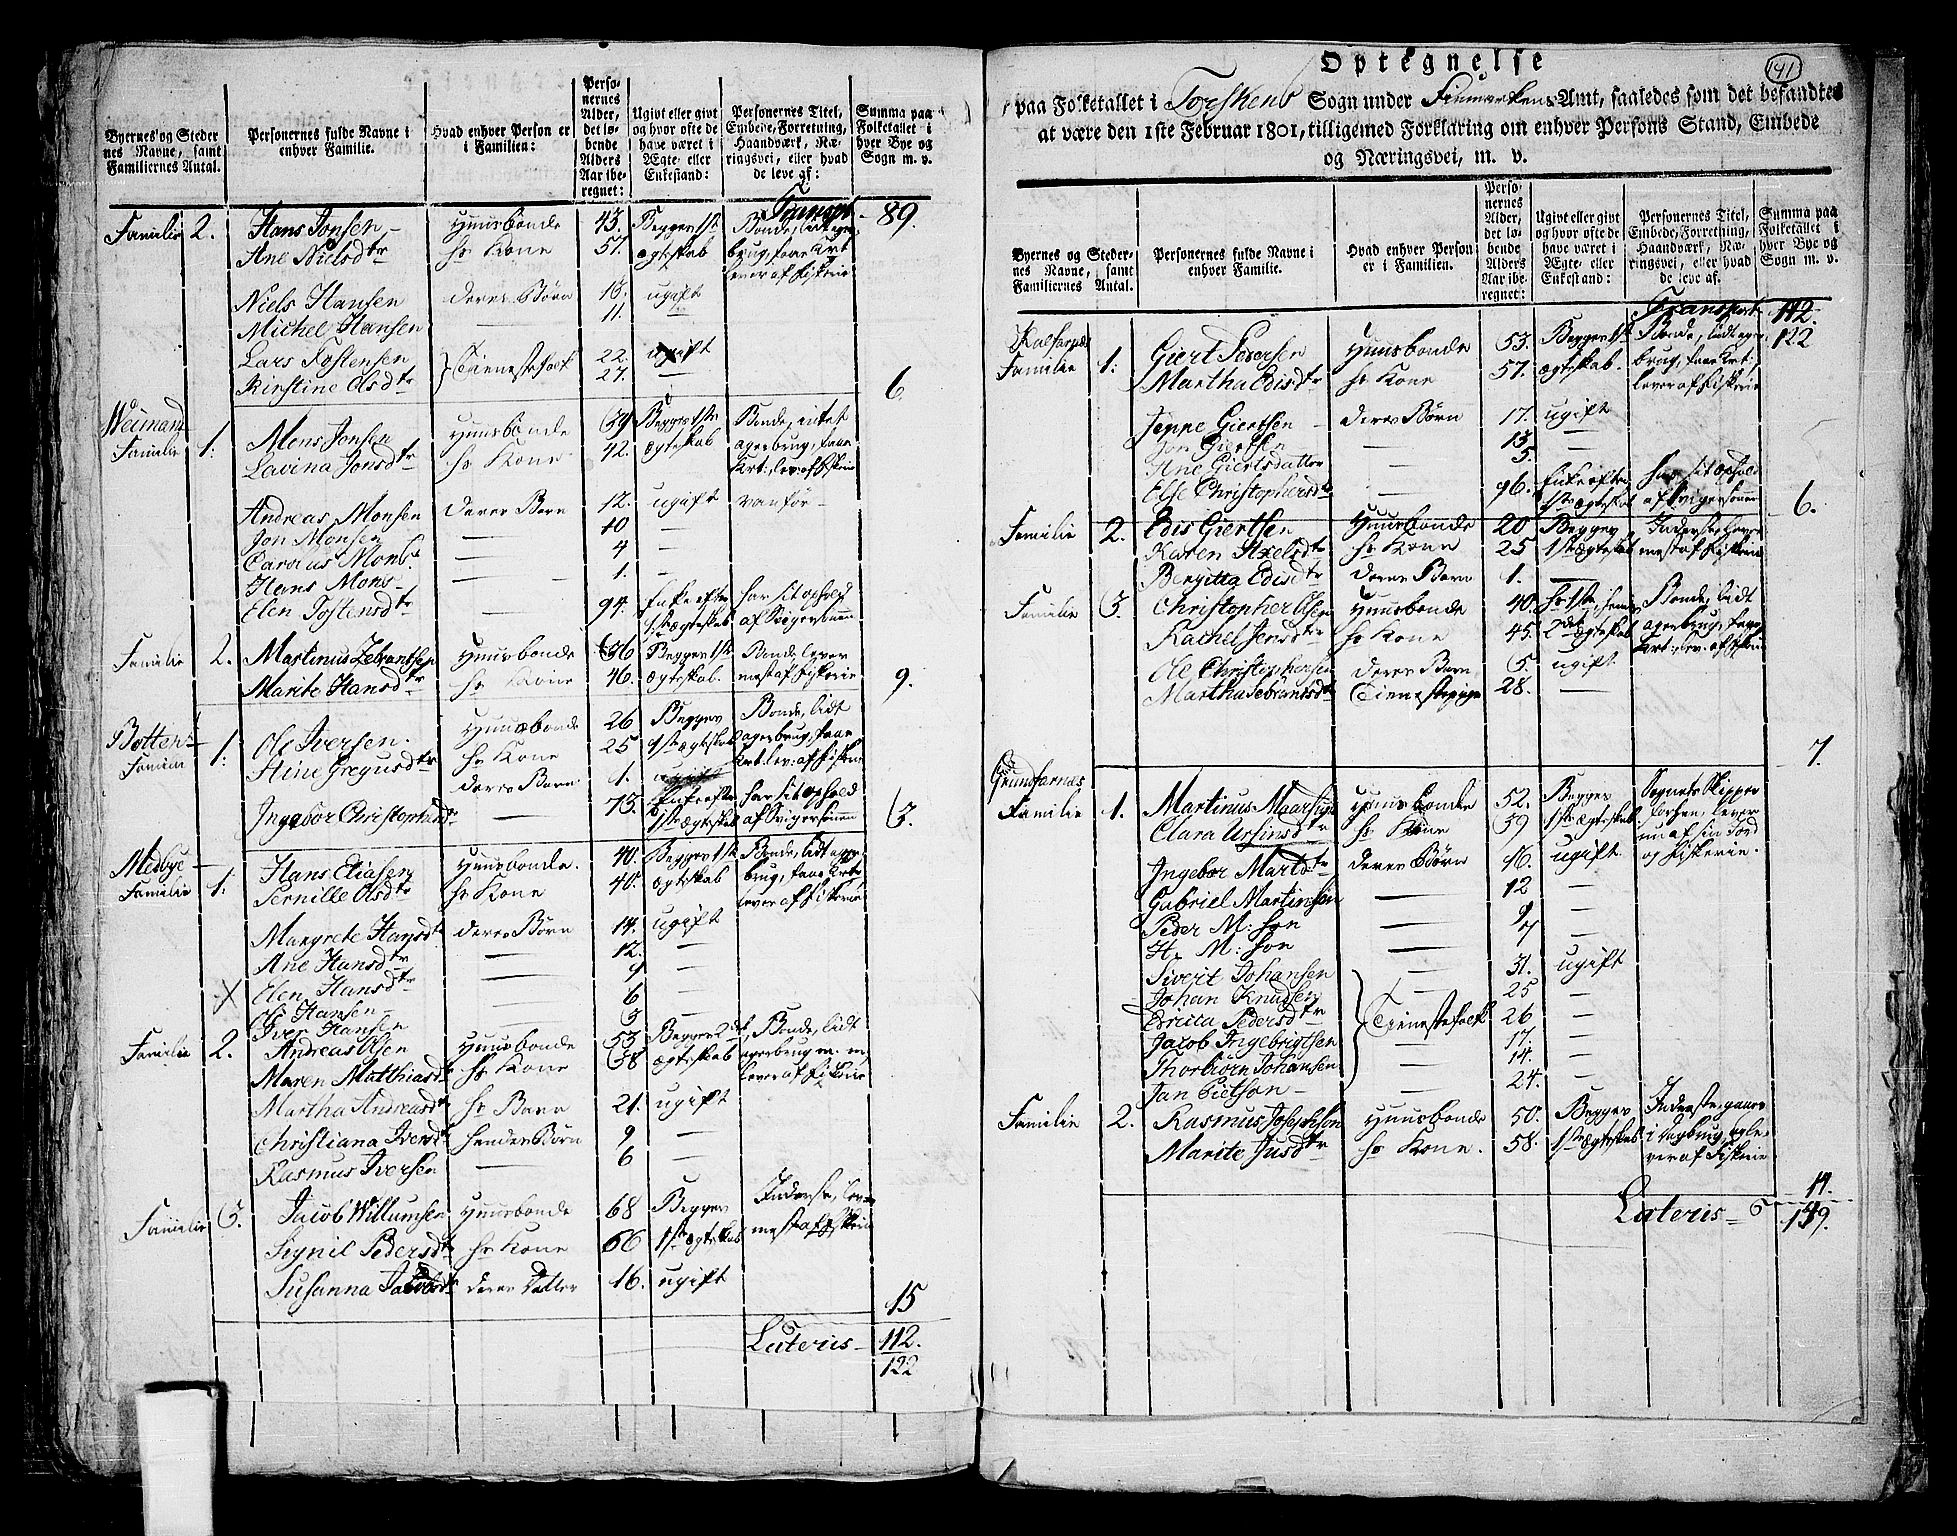 Byernes og Steder nes Navne, samt Familiernes Antal. | Personernes fulde Navne i enhver Familie. | Hvad enhver Person er i Familien: | Personernes Alder, det løbende Alders Aar iberegnet: | Ugivt eller givt og hvor ofte de have været i Ægte- eller Enkestand: | Personernes Titel, Embede, Forretning, Haandværk, Næringsvei, eller hvad de leve af: | Summa paa Folketallet i hver Bye og Sogn m. v.
Transp. 89.
Familie 2. Hans Jonsen – Huusbonde 43. Begge 1ste Bonde, lidt ager
Ane Nielsdtr hs Kone 57. ægteskab brug, faae Krt
lever af fiskerie
Niels Hansen deres Børn 18. ugift
Michel Hansen — 11. —
Lars Tostensen } Tienestefolk 22. ugift
Kirstine Olsdtr 27. — 6.
Weimand
Familie 1. Mons Jonsen Huusbonde 39 Begge 1ste Bonde, intet
Lavina Jonsdtr hs Kone 42. ægteskab agerbrug, faae
Krt: lev: af fiskerie
Andreas Monsen deres Børn 12. ugift vanfør –
Jon Monsen — 10 —
Carolus Mons. — 4 —
Hans Mons — 1. —
Elen Tostensdtr — 94. Enke efter har sit ophold
1ste ægteskab af Svigersønnen
Familie 2. Martinus Zebrantsen Huusbonde 36 Begge 1ste Bonde lever
Marite Hansdtr hs Kone 46. ægteskab. mest af fiskerie 9.
Botten
Familie 1. Ole Iversen. Huusbonde 26 Begges Bonde, lidt
Stine Gregusdtr hs Kone 25 1ste ægteskab agerbrug, faae
deres Barn 1. ugift Krt. lev: af fiskerie
Ingebor Christophersdtr — 73. Enke efter har sit ophold
1ste ægteskab af Svigersønnen 3.
Medbye
Familie 1. Hans Eliasen Huusbonde. 40. Begge 1ste Bonde, lidt ager
Pernille Olsdtr hs Kone 40. ægteskab brug, faae Krt.
lever af fiskerie
Margrete Hansdtr deres Børn 14. ugift
Ane Hansdtr — 12. —
Elen Hansdtr — 9 —
Ol Hansen — 6 —
Iver Hansen 3 —
Familie 2. Andreas Olsen Huusbonde 53 Begge 2det Bonde, lidt
Maren Matthiasdtr hs Kone 38 ægteskab agerbrug m. m.
lever af fiskerie
Martha Andreasdtr hs Barn 21. ugift
Christiana Iversdtr hendes Børn 9 —
Rasmus Iversen — 6 —
Familie 3. Jacob Willumsen Huusbonde 68 Begges Inderste, lever
Synil Pedersdtr hs Kone 66 1ste ægteskab mest af fiskerie
Susanna Jacobsdtr deres Datter 16. ugift
15
Lateris – 112.
122
141
Optegnelse
paa Folketallet i Torskens Sogn under Finmarkens Amt, saaledes som det befandtes
at være den 1ste Februar 1801, tilligemed Forklaring om enhver Persons Stand, Embede
og Næringsvei, m. v.
Byernes og Steder nes Navne, samt Familiernes Antal. | Personernes fulde Navne i enhver Familie. | Hvad enhver Person er i Familien. | Personernes Alder, det løbende Alders Aar iberegnet: | Ugivt eller givt og hvor ofte de have været i Ægte- eller Enkestand: | Personernes Titel, Embede, Forretning, Haandværk, Næringsvei, eller hvad de leve af. | Summa paa Folketallet i hver Bye og Sogn m. v.
Transport 112.
122
Kalfarnes
Familie 1. Giert Pedersen Huusbonde 53. Begge 1ste Bonde, lidt ager
Martha Edisdtr hs Kone 57. ægteskab. brug, faae Krt:
lever af fiskerie
Jeppe Giertsen – deres Børn 17. ugift
Jon Giertsen — 13
Ane Giertsdatter — 5. —
Else Christophersdtr — 96. Enke efter har sit ophold
1ste ægteskab af Svigersønnen 6.
Familie 2. Edis Giertsen Huusbonde 20 Begges Inderste, lever
Karen Axelsdtr hs Kone 25 1ste ægteskab mest af fiskerie
Bergitta Edisdtr deres Barn 1. —
Familie 3. Christopher Olsen Huusbonde 40. hs 1ste, hendes Bonde, lidt
Rachel Jensdtr hs Kone 45. 2det ægteskab agerbrug, faae
Krt: lev: af fiskerie
Ole Christophersen deres Barn 5. ugift
Martha Zebrantsdtr Tienestepige 28. —
7.
Grundfarnæs
Familie 1. Martinus Maarsund Huusbonde 52. Begges Sognets Skipper
Clara Ursinsdtr hs Kone 59 1ste ægteskab lever
nu af sin Jord
Ingebor Martsdtr deres Børn 16. ugift og fiskerie.
Gabriel Martinsen — 12 —
Peder M: søn — 9 —
H. M: søn — 7 —
Sivert Johansen } 31. ugift
Johan Knudsen 25 —
Britta Pedersdtr Tienestefolk 26 —
Jacob Ingebrigtsen — 17. —
Thorbiørn Johansen — 14. —
Jan Pietson – 24. —
Familie 2. Rasmus Josephsen Huusbonde 50. Begges Inderste, gaaer
Marite Jusdtr hs Kone. 58. 1ste ægteskab i dagbrug, og le-
ver af fiskerie
14.
Lateris – 149.